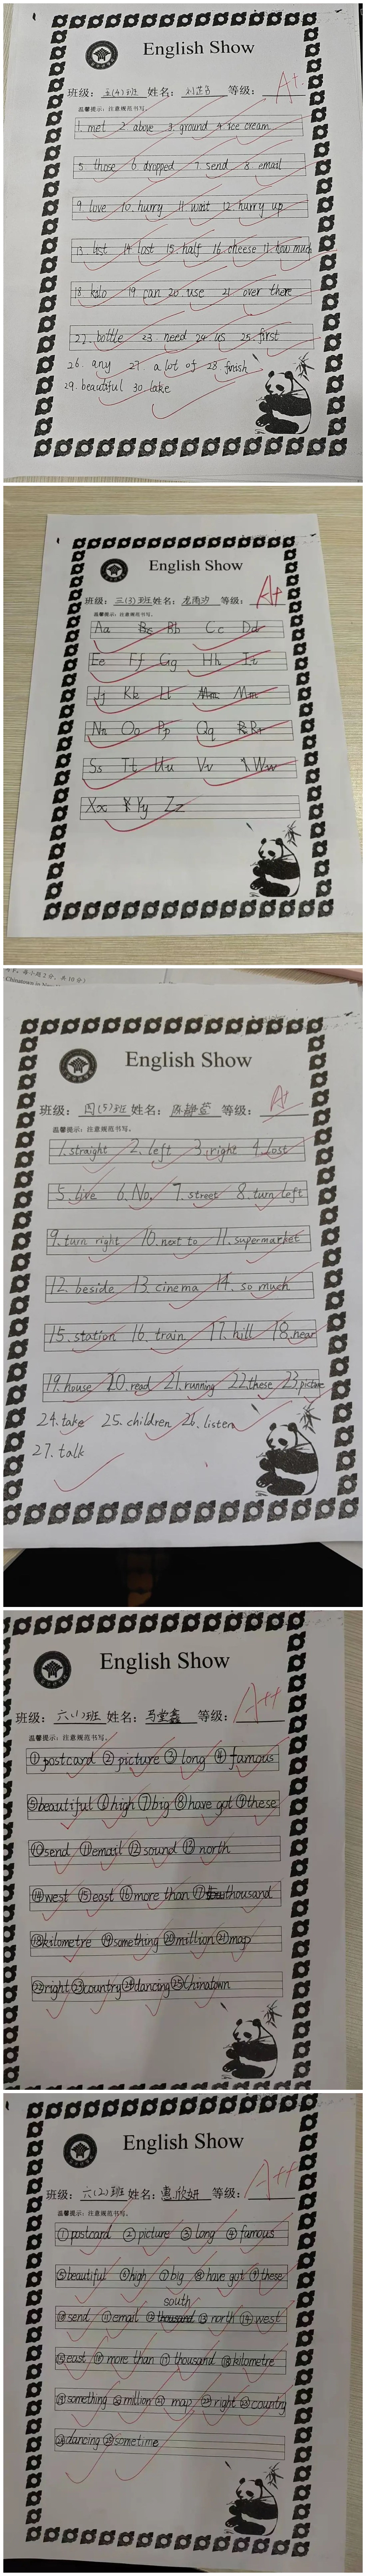 English Show
班级：五(4)班 姓名： 等级：A+
温馨提示：注意规范书写。
1. met 2. above 3. ground 4. ice cream
5. those 6. dropped 7. send 8. email
9. love 10. hurry 11. wait 12. hurry up
13. lost 14. lost 15. half 16. cheese 17. how much
18. kilo 19. can 20. use 21. over there
22. bottle 23. need 24. us 25. first
26. any 27. a lot of 28. finish
29. beautiful 30. lake
English Show
班级：三(3)班 姓名： 等级：A+
温馨提示：注意规范书写。
Aa Bb Cc Dd
Ee Ff Gg Hh Ii
Jj Kk Ll Mm
Nn Oo Pp Qq Rr
Ss Tt Uu Vv Ww
Xx Yy Zz
English Show
班级：四(5)班 姓名： 等级：A+
温馨提示：注意规范书写。
1. straight 2. left 3. right 4. lost
5. live 6. No. 7. street 8. turn left
9. turn right 10. next to 11. supermarket
12. beside 13. cinema 14. so much
15. station 16. train 17. hill 18. near
19. house 20. read 21. running 22. these 23. picture
24. take 25. children 26. listen
27. talk
English Show
班级：六(1)班 姓名：马堂鑫 等级：A++
温馨提示：注意规范书写。
① postcard ② picture ③ long ④ famous
⑤ beautiful ⑥ high ⑦ big ⑧ have got ⑨ these
⑩ send ⑪ email ⑫ sound ⑬ north
⑭ west ⑮ east ⑯ more than ⑰ thousand
⑱ kilometre ⑲ something ⑳ million ㉑ map
㉒ right ㉓ country ㉔ dancing ㉕ Chinatown
English Show
班级：六(2)班 姓名：欣妍 等级：A++
温馨提示：注意规范书写。
① postcard ② picture ③ long ④ famous
⑤ beautiful ⑥ high ⑦ big ⑧ have got ⑨ these
south
⑩ send ⑪ email ⑫ thousand ⑬ north ⑭ west
⑮ east ⑯ more than ⑰ thousand ⑱ kilometre
⑲ something ⑳ million ㉑ map ㉒ right ㉓ country
㉔ dancing ㉕ sometime